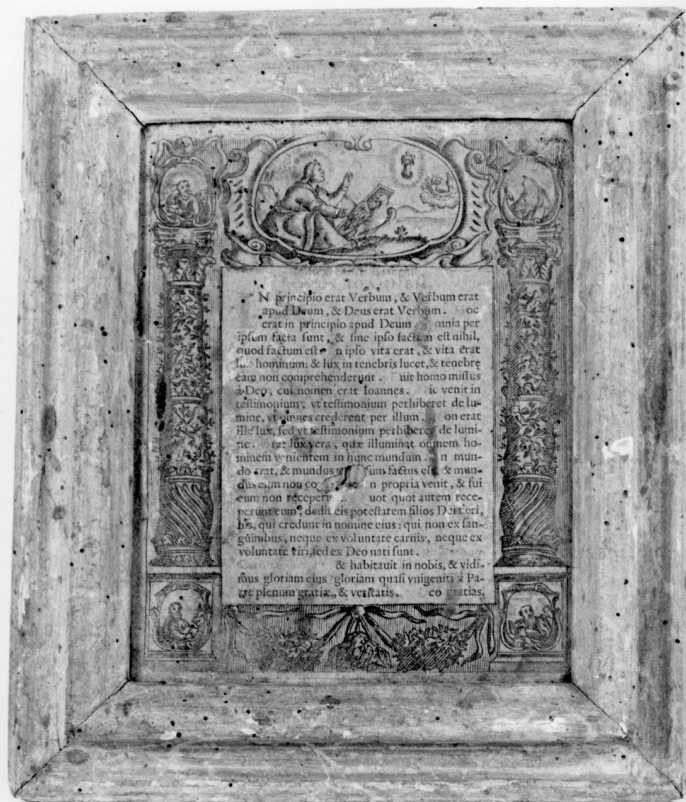 N principio erat Verbum, & Verbum erat
apud Deum, & Deus erat Verbum. oc
erat in principio apud Deum. mnia per
ipſum facta ſunt, & ſine ipſo factum eſt nihil,
quod factum eſt n ipſo vita erat, & vita erat
hominum: & lux in tenebris lucet, & tenebre
eam non comprehenderunt. nit homo miſſus
à Deo, cui nomen erat Ioannes. ic venit in
teſtimonium, vt teſtimonium perhiberet de lu-
mine, vt omnes crederent per illum. on erat
ille lux, ſed vt teſtimonium perhiberet de lumi-
ne. rat lux vera, quæ illuminat omnem ho-
minem venientem in hunc mundum. n mun-
do erat, & mundus ſum factus eſt, & mun-
dus eum non co n propria venit, & ſui
eum non receper uot quot autem rece-
perunt eum, dedit eis poteſtatem filios Dei fieri,
his, qui credunt in nomine eius: qui non ex ſan-
guinibus, neque ex voluntate carnis, neque ex
voluntate viri, ſed ex Deo nati ſunt.
& habitauit in nobis, & vidi-
mus gloriam eius gloriam quaſi vnigeniti à Pa-
tre plenum gratiæ, & veritatis. eo gratias.